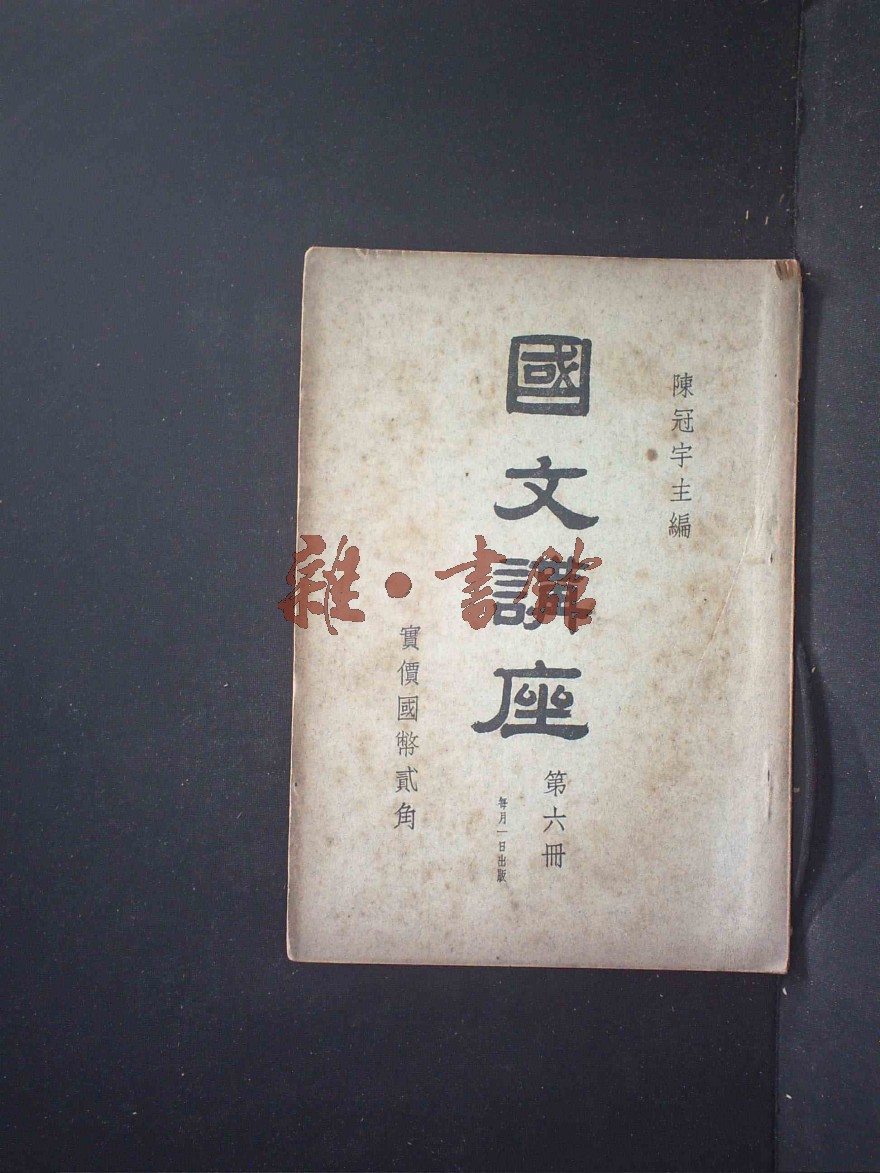 陳冠宇主編
國文講座
第六冊
每月一日出版
實價國幣貳角
雜·書館